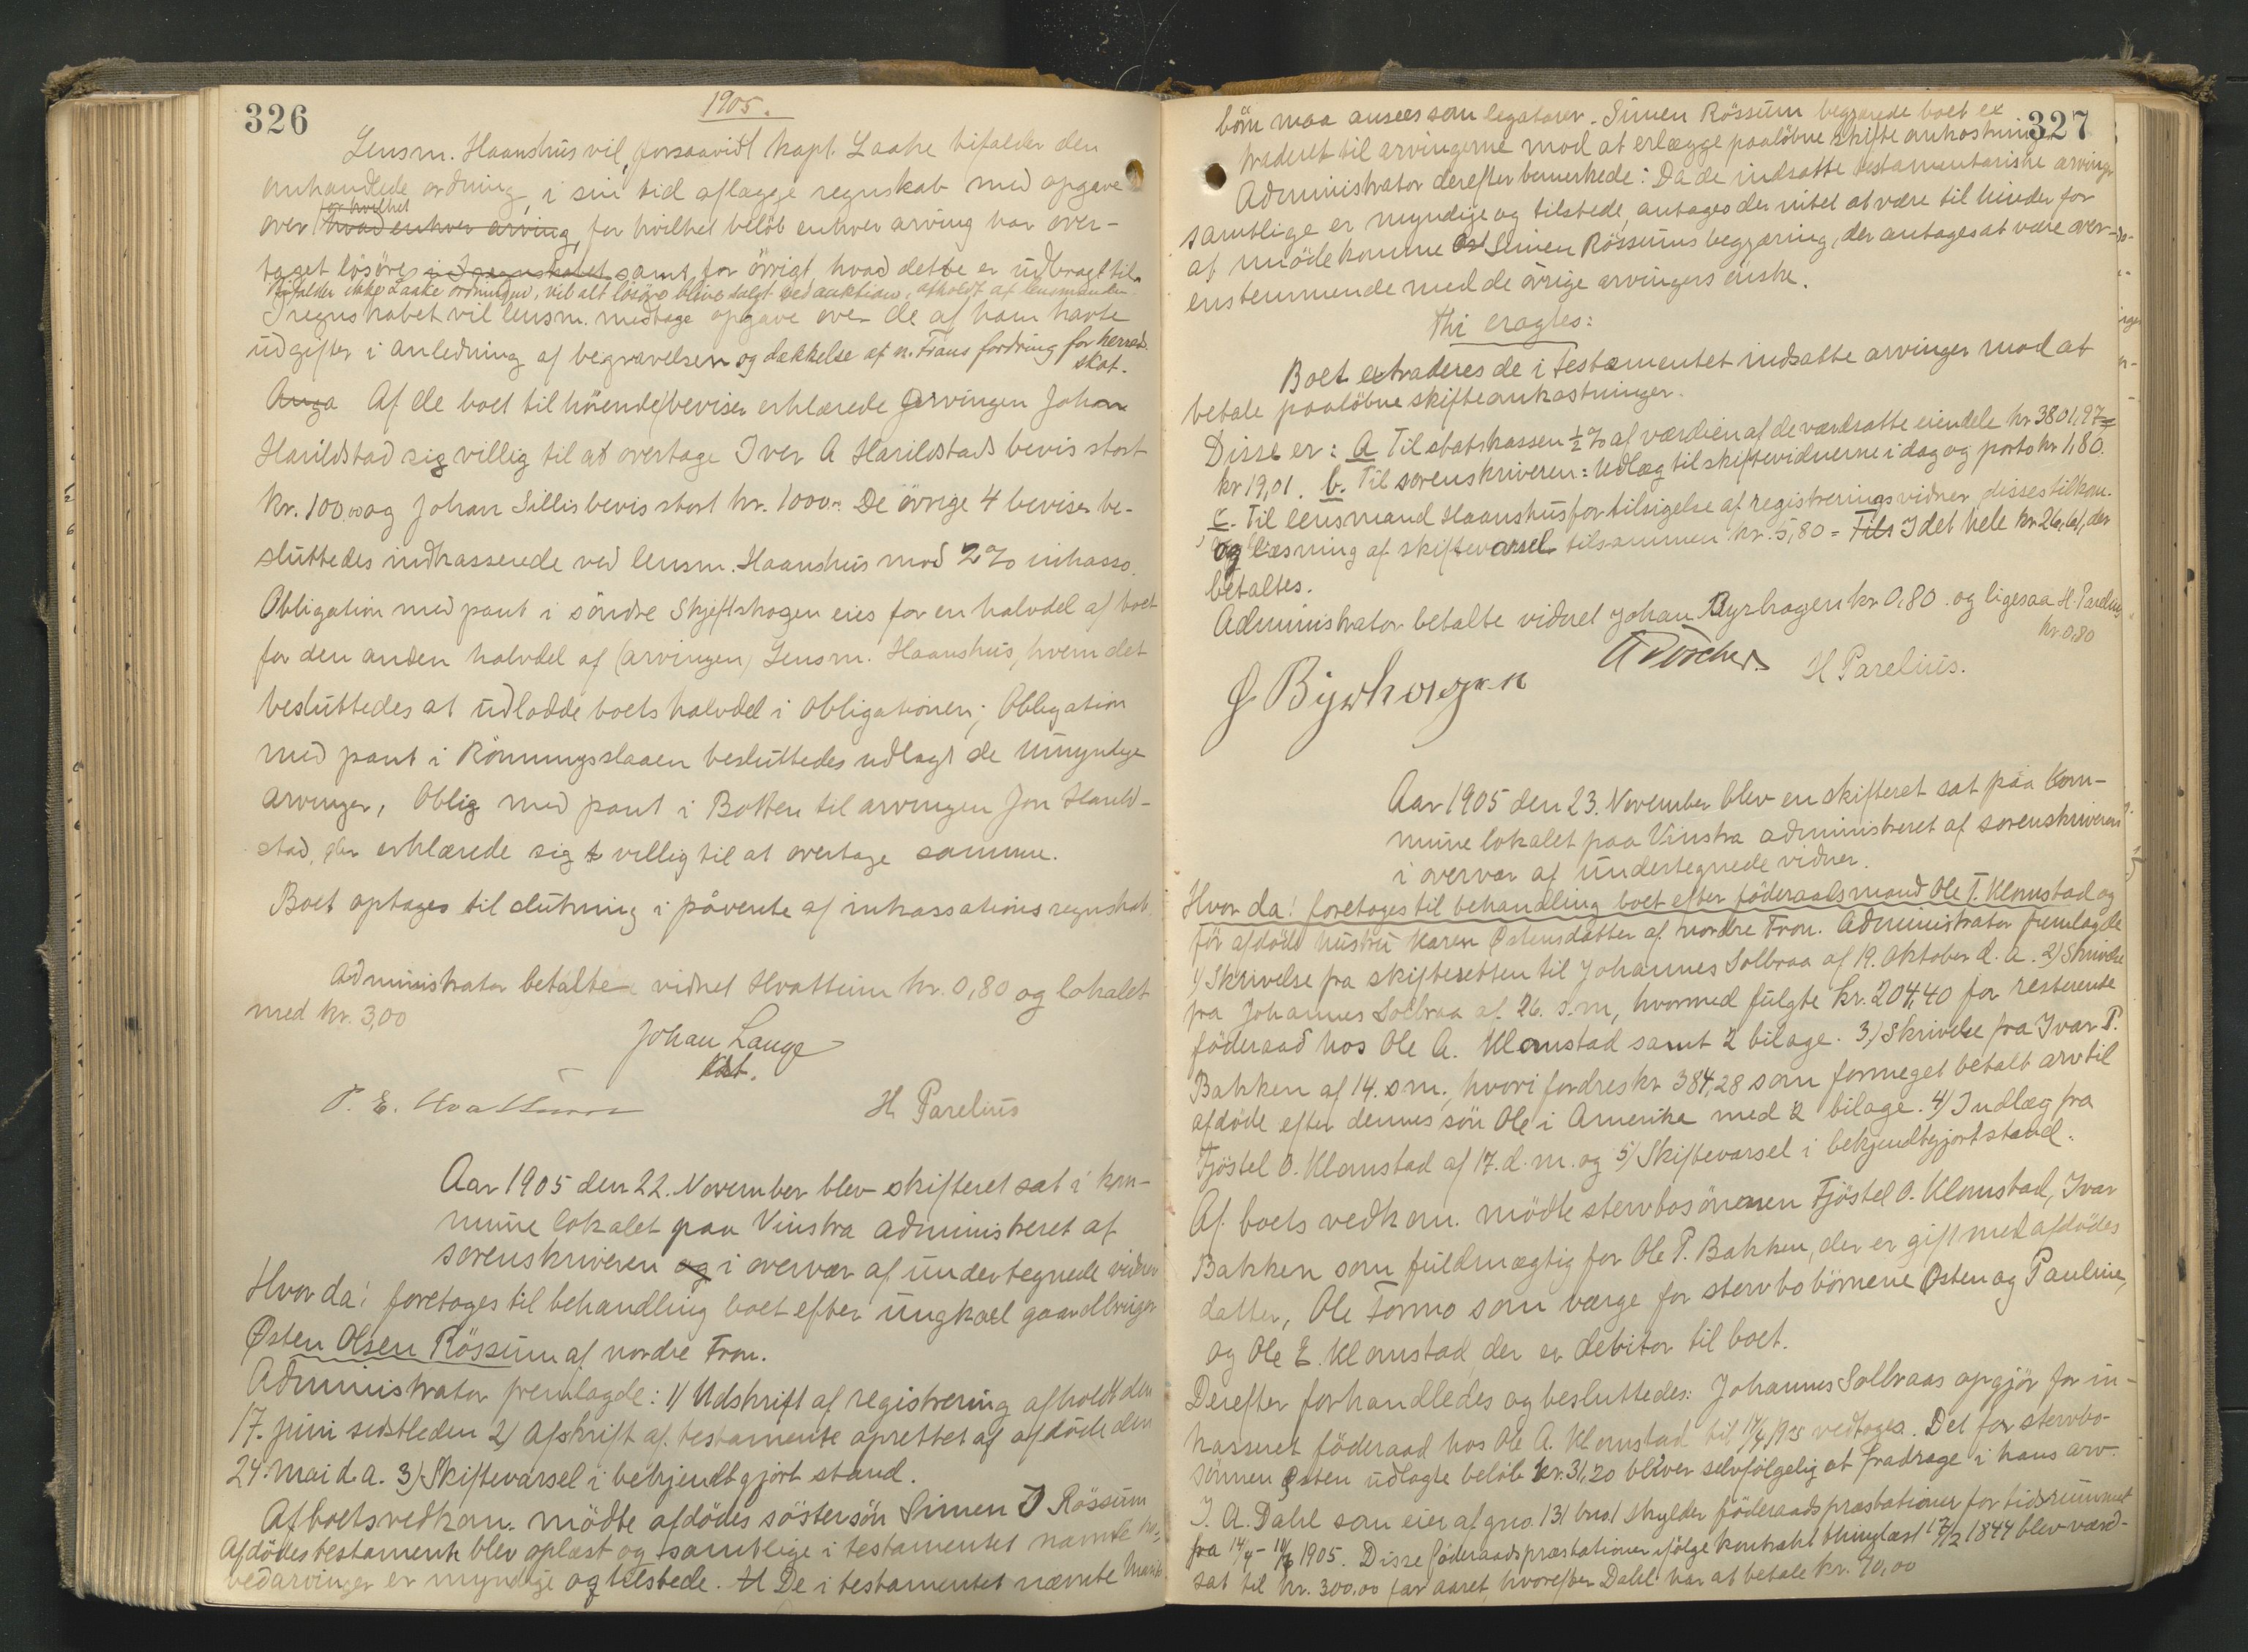 326
1905.
Lensm. Haanshus vil, forsaavidt kapt. Laake bifalder den
omhandlede ordning, i sin tid aflægge regnskab med opgave
for hvilket
over hvad enhver arving, for hvilket beløb enhver arving har over-
taget løsøre, i regnskabet samt for övrigt, hvad dette er udbragt til.
Bifalder ikke Laake ordningen, vil alt løsøre blive solgt ved auktion, afholdt af lensmanden
I regnskabet vil lensm. medtage opgave over de af ham havte
udgifter i anledning af begravelsen og dækkelse af n. Frons fordring for herreds-
skat.
Anga Af de boet tilhörende beviser erklærede arvingen Johan
Harildstad sig villig til at overtage Iver A Harildstads bevis stort
kr. 100,00 og Johan Sillis bevis stort kr. 1000.- De övrige 4 beviser be-
sluttedes indkasserede ved lensm. Haanshus mod 2% inkasso.
Obligation med pant i söndre Skjeftskogen eies for en halvdel af boet
for den anden halvdel af (arvingen) Lensm. Haanshus, hvem det
besluttedes at udlodde boets halvdel i Obligationen; Obligation
med pant i Rönningsslaaen besluttedes udlagt de Umyndige
arvinger, Oblig med pant i Botten til arvingen Jon Harild-
stad, der erklærede sig t villig til at overtage samme.
Boet optages til slutning i påvente af inkassations regnskab.
Administrator betalte vidnet Hvattum kr. 0,80 og lokalet
med kr. 3,00
Johan Lange
Kst.
P. E. Hvattum H. Parelius
Aar 1905 den 22. November blev skifteret sat i kom-
mune lokalet paa Vinstra administreret af
sorenskriveren og i overvær af undertegnede vidner
Hvor da! foretoges til behandling boet efter ungkarl gaardbruger
Østen Olsen Rössum af nordre Fron.
Administrator fremlagde: 1) Udskrift af registrering afholdt den
17. juni sidstleden 2) Afskrift af testamente oprettet af afdöde den
24. mai d.a. 3) Skiftevarsel i bekjendtgjort stand.
Af boets vedkom. mödte afdödes söstersön Simen O Rössum
Afdödes testamente blev oplæst og samtlige i testamentet nævnte ho-
vedarvinger er myndige og tilstede. H De i testamentet nævnte Marits
327
börn maa ansees som legatarer. Simen Rössum begjærede boet ex
traderet til arvingerne mod at erlægge paalöbne skifteomkostninger
Administrator derefter bemerkede: Da de indsatte testamentariske arvinger
samtlige er myndige og tilstede, antages der intet at være til hinder for
at imödekomme at Simen Rössums begjæring, der antages at være over-
ensstemmende med de övrige arvingers önske.
Thi eragtes:
Boet extraderes de i testamentet indsatte arvinger mod at
betale paalöbne skifteomkostninger.
Disse er: A Til statskassen ½ % af værdien af de værdsatte eiendele kr 3801,97 =
kr 19,01. b. Til sorenskriveren: Udlæg til skiftevidnerne i dag og porto kr 1,80.
c. Til lensmand Haanshus for tilsigelse af registreringsvidner, disses tilkom.
og læsning af skiftevarsel tilsammen kr. 5,80 = Tils I det hele kr 26,61, der
betaltes.
Administrator betalte vidnet Johan Byrhagen kr 0,80 og ligesaa H. Parelius
kr 0,80
J Byrhagen H Parelius.
Aar 1905 den 23. November blev en skifteret sat paa kom-
mune lokalet paa Vinstra administreret af sorenskriveren
i overvær af undertegnede vidner.
Hvor da! foretoges til behandling boet efter föderaadsmand Ole T. Klomstad og
för afdöde hustru Karen Østensdatter af nordre Fron. Administrator fremlagde
1) Skrivelse fra skifteretten til Johannes Solbraa af 19. Oktober d. a. 2) Skrivelse
fra Johannes Solbraa af 26. s.m, hvormed fulgte kr. 204,40 for resterende
föderaad hos Ole A. Klomstad samt 2 bilage. 3) Skrivelse fra Ivar P.
Bakken af 14. s m., hvori fordres kr 384,28 som formeget betalt arv til
afdöde efter dennes sön Ole i Amerika med 2 bilage. 4) Indlæg fra
Fjöstel O. Klomstad af 17. d. m. og 5) Skiftevarsel i bekjendtgjort stand.
Af boets vedkom. mödte stervbosönnen Fjöstel O. Klomstad, Ivar
Bakken som fuldmægtig for Ole P. Bakken, der er gift med afdödes
datter, Ole Formo som værge for stervbobörnene Østen og Pauline,
og Ole E. Klomstad der er debitor til boet.
Derefter forhandledes og besluttedes: Johannes Solbraas opgjör for in-
kasseret föderaad hos Ole A. Klomstad til 14/4 1905 vedtages. Det for stervbo-
sönnen Østen udlagte belöb kr. 31,20 bliver selvfölgelig at fradrage i hans arv.
I. A. Dahl som eier af gno. 131 bno. 1 skylder föderaadspræstationer for tidsrummet
fra 14/4 - 1905. Disse föderaadspræstationer ifölge kontrakt thinglæst 17/2 1844 blev værd-
sat til kr. 300,00 for aaret, hvorefter Dahl har at betale kr. 70,00